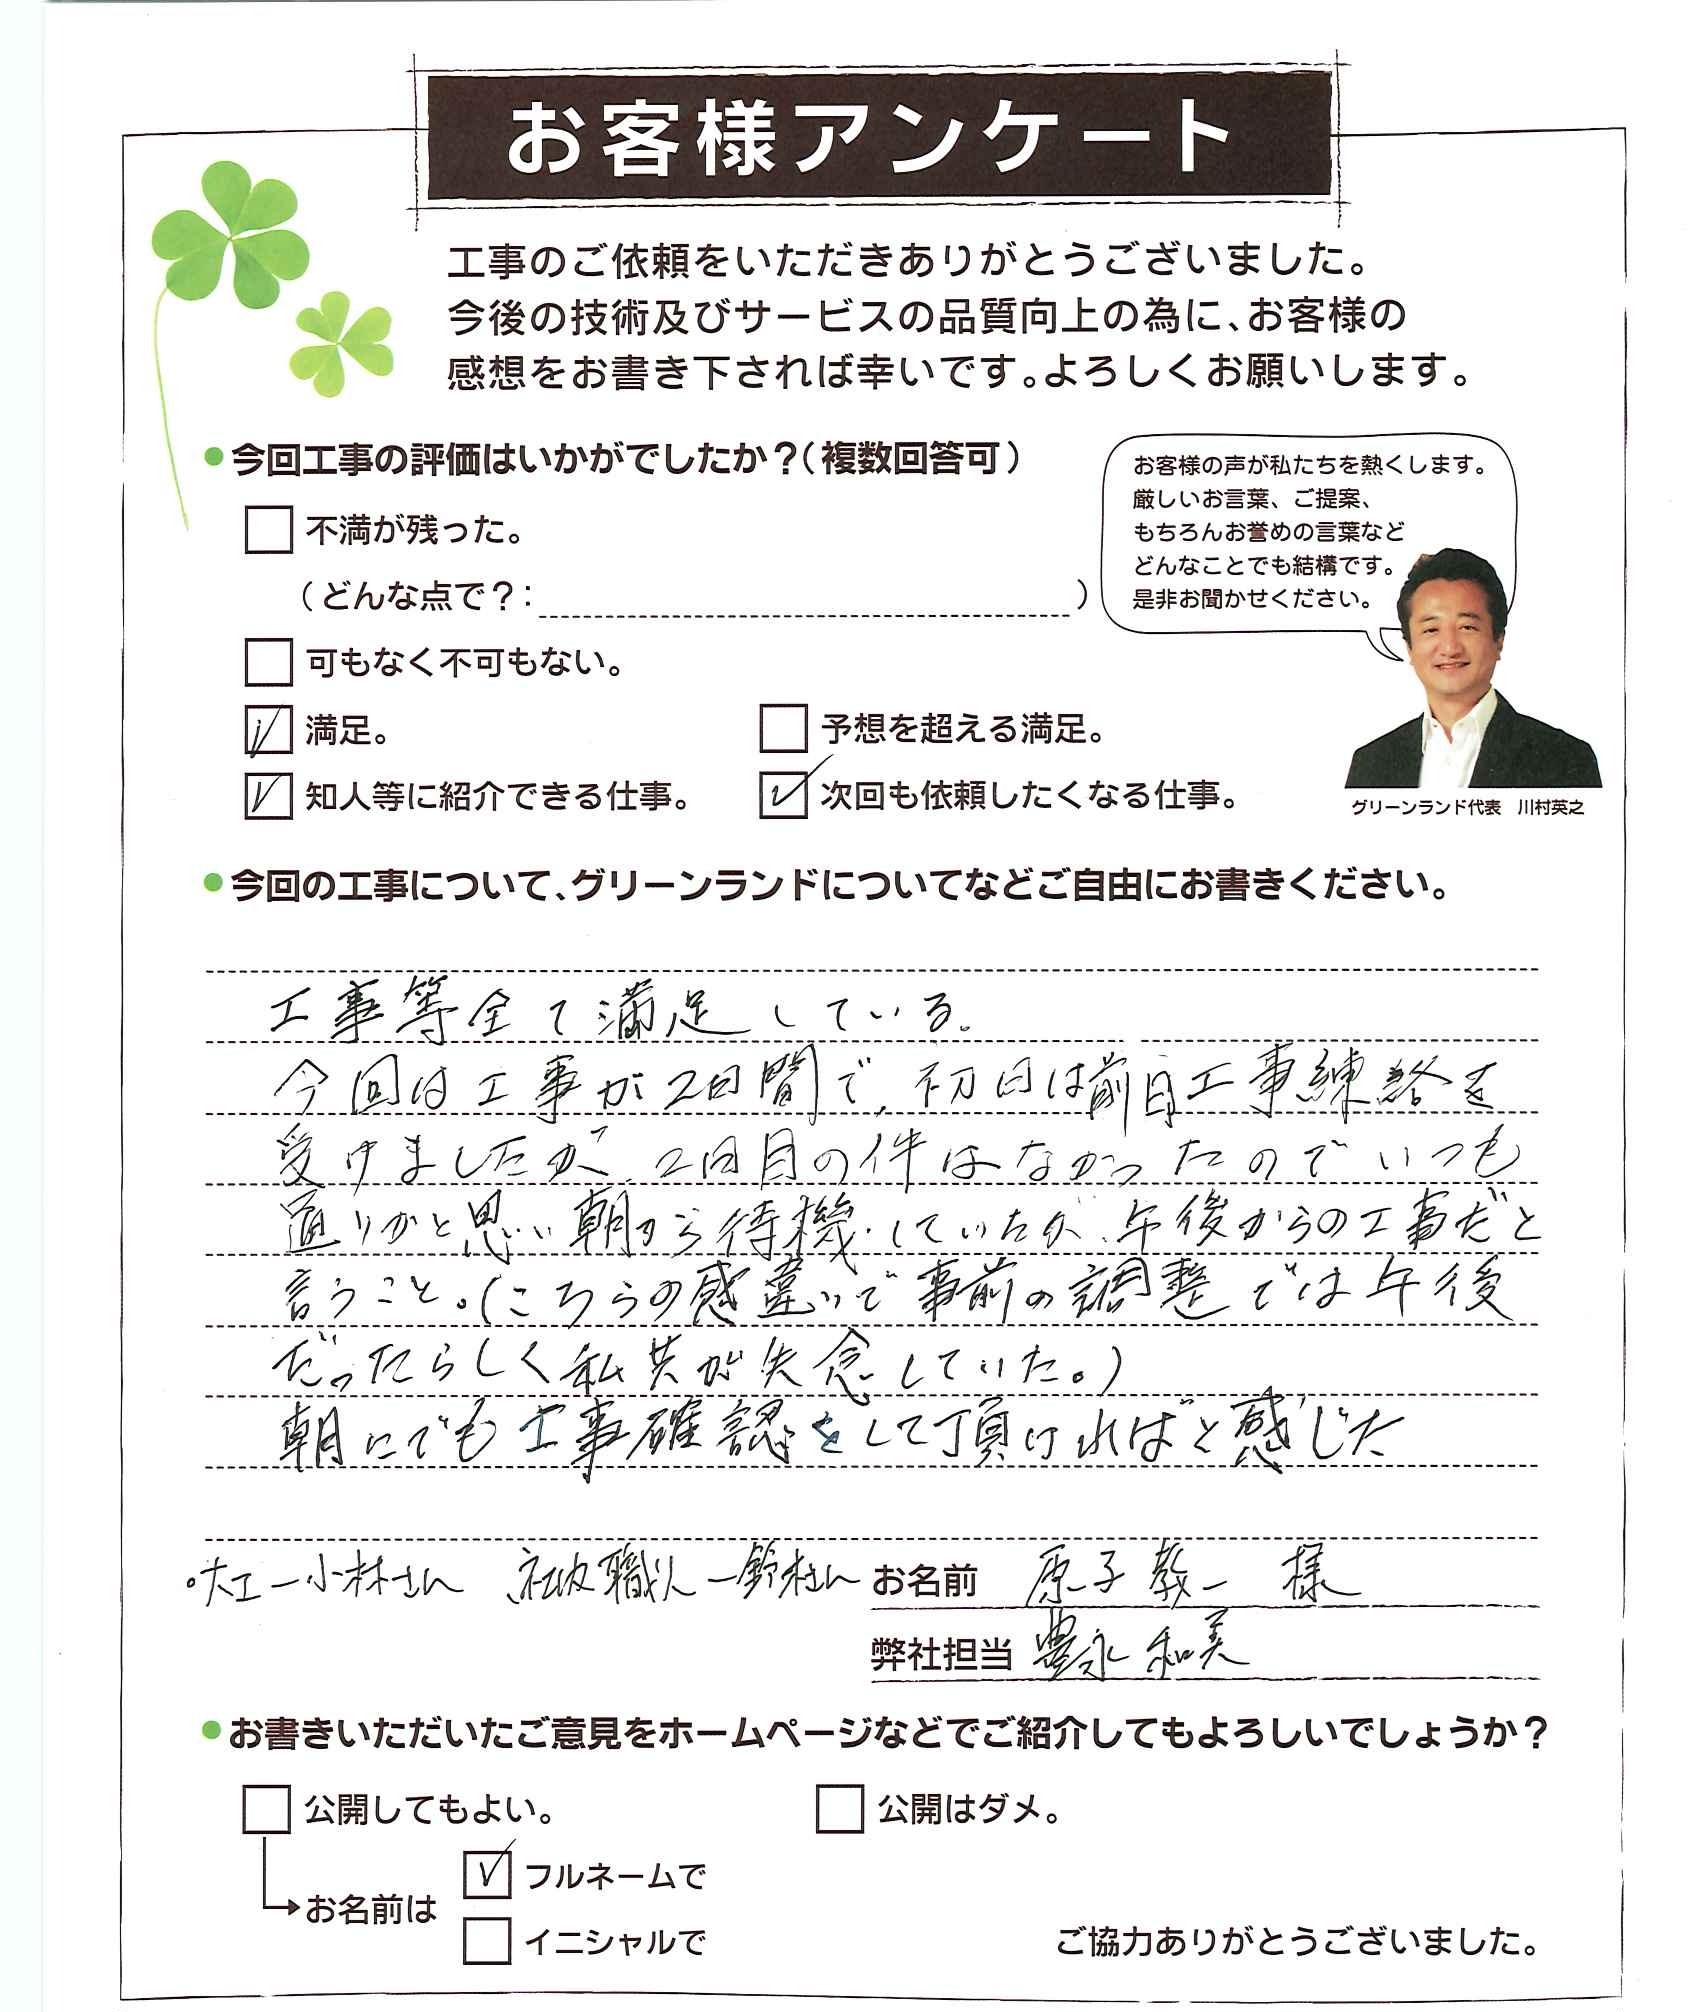 お客様アンケート
工事のご依頼をいただきありがとうございました。
今後の技術及びサービスの品質向上の為に、お客様の
感想をお書き下されば幸いです。よろしくお願いします。
●今回工事の評価はいかがでしたか？（複数回答可）
□ 不満が残った。
（どんな点で？：　）
□ 可もなく不可もない。
☑ 満足。
□ 予想を超える満足。
☑ 知人等に紹介できる仕事。
☑ 次回も依頼したくなる仕事。
お客様の声が私たちを熱くします。
厳しいお言葉、ご提案、
もちろんお誉めの言葉など
どんなことでも結構です。
是非お聞かせください。
グリーンランド代表　川村英之
●今回の工事について、グリーンランドについてなどご自由にお書きください。
工事等全て満足している。
今回は工事が2日間で、初日は前日工事練絡を
受けましたが、2日目の件はなかったのでいつも
通りかと思い朝から待機していたが、午後からの工事だと
言うこと。(こちらの感違いで事前の調整では午後
だったらしく私共が失念していた。)
朝にでも工事確認をして頂ければと感じた
。大工ー小林さん　社内職人ー鈴木さん
お名前　原子教一 様
弊社担当　豊永和美
●お書きいただいたご意見をホームページなどでご紹介してもよろしいでしょうか？
□ 公開してもよい。
□ 公開はダメ。
お名前は
☑ フルネームで
□ イニシャルで
ご協力ありがとうございました。